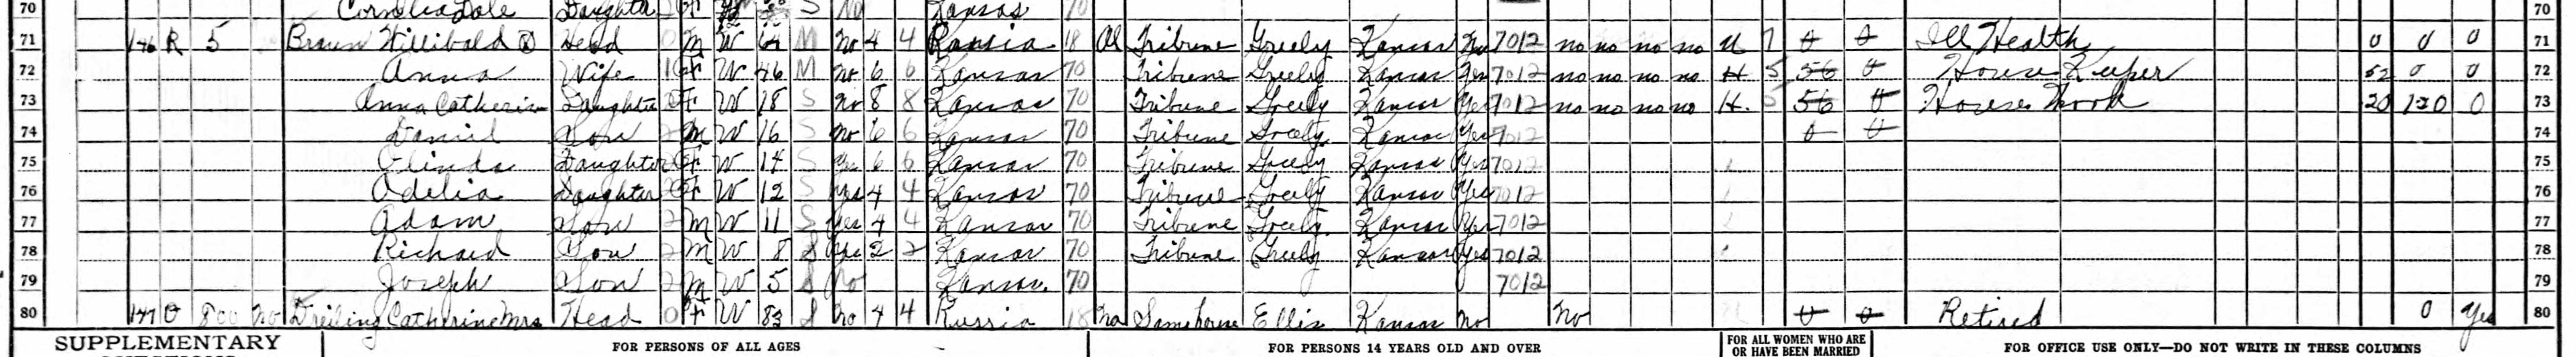 70 Cornelia Dole Daughter F S No Kansas 70 70
71 146 R 5 Braun Willibald Head 0 M W 64 M No 4 4 Russia 18 Al Tribune Greely Kansas No 7012 no no no no U 7 0 0 Ill Health 0 0 0 71
72 Anna Wife 1 F W 46 M no 6 6 Kansas 70 Tribune Greely Kansas Yes 7012 no no no no H 5 56 0 House Keeper 52 0 0 72
73 Anna Catherin Daughter 2 F W 18 S No 8 8 Kansas 70 Tribune Greely Kansas Yes 7012 no no no no H. 5 56 0 House Work 20 120 0 73
74 Daniel Son 2 M W 16 S No 6 6 Kansas 70 Tribune Greely. Kansas Yes 7012 0 0 74
75 Olinda Daughter 2 F W 14 S Yes 6 6 Kansas 70 Tribune Greely Kansas Yes 7012 75
76 Adelia Daughter 2 F W 12 S Yes 4 4 Kansas 70 Tribune Greely Kansas Yes 7012 76
77 Adam Son 2 M W 11 S Yes 4 4 Kansas 70 Tribune Greely. Kansas Yes 7012 77
78 Richard Son 2 M W 8 S Yes 2 2 Kansas 70 Tribune Greely Kansas Yes 7012 78
79 Joseph Son 2 M W 5 S No Kansas. 70 7012 79
80 147 O 800 no Dreiling Catherine Mrs Head 0 F W 83 S No 4 4 Russia 18 Na Same house Ellis Kansas No No 0 0 Retired 0 Yes 80
SUPPLEMENTARY FOR PERSONS OF ALL AGES FOR PERSONS 14 YEARS OLD AND OVER FOR ALL WOMEN WHO ARE OR HAVE BEEN MARRIED FOR OFFICE USE ONLY—DO NOT WRITE IN THESE COLUMNS